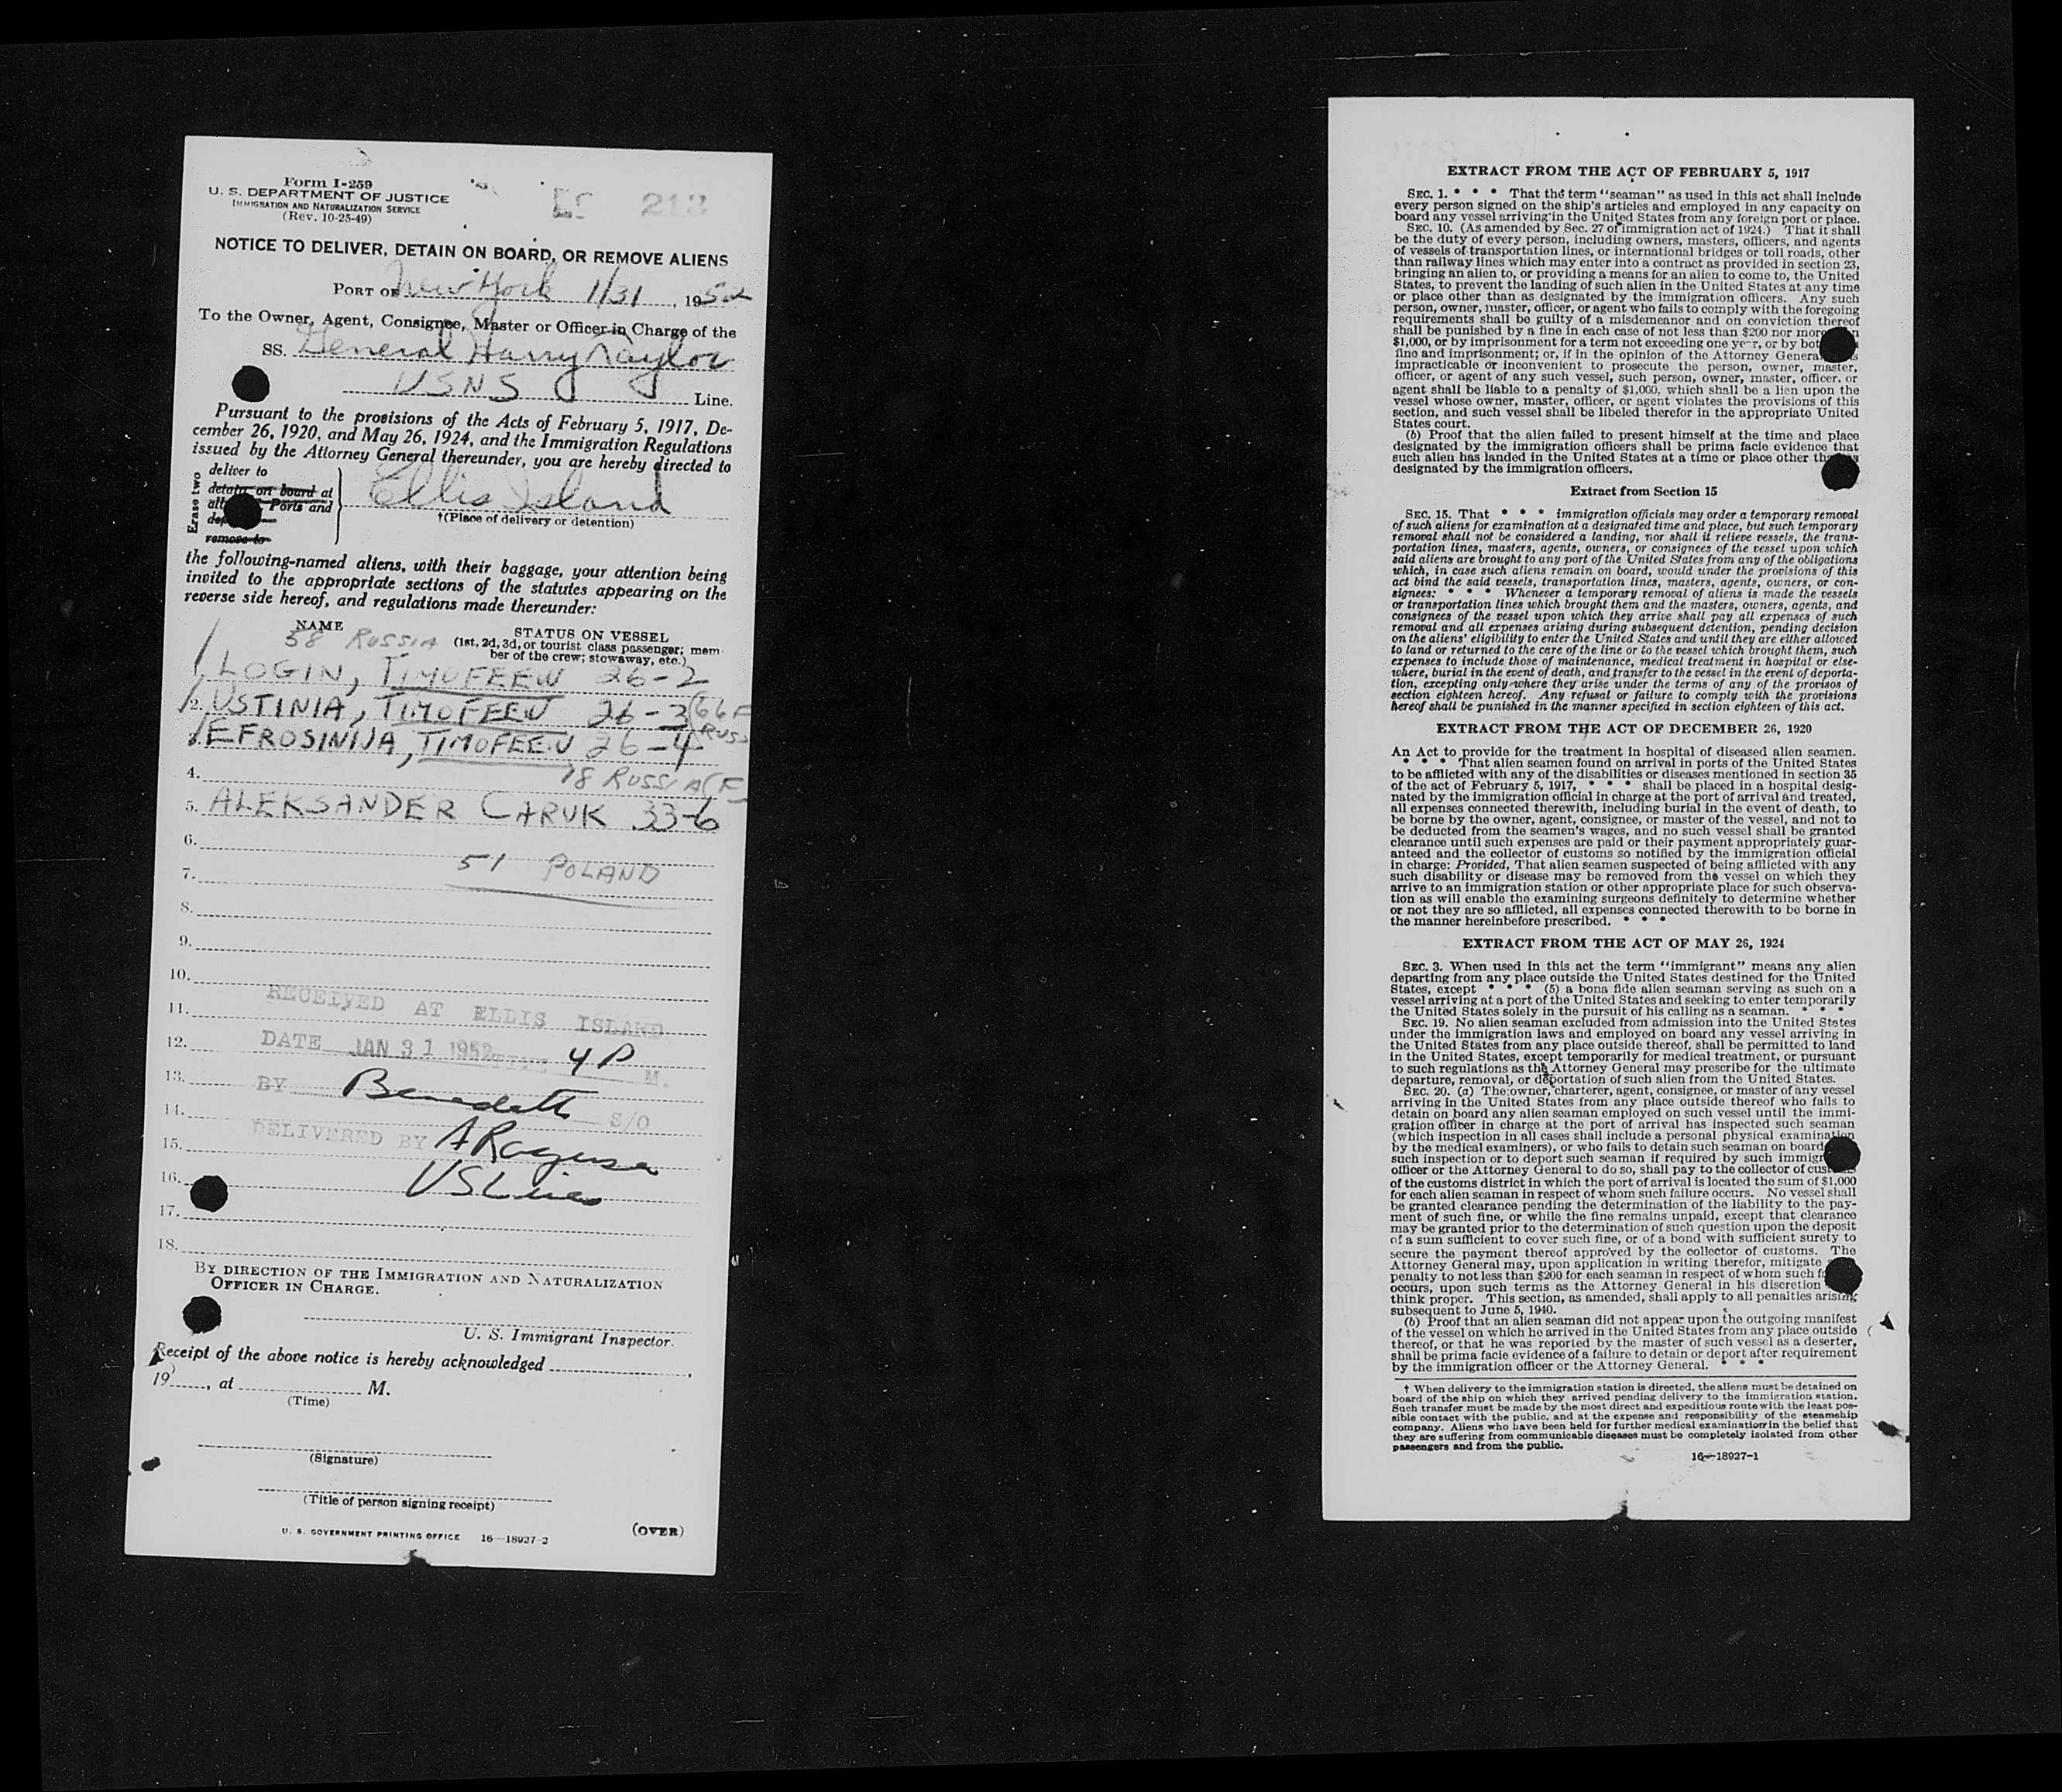 Form I-259
U. S. DEPARTMENT OF JUSTICE
IMMIGRATION AND NATURALIZATION SERVICE
(Rev. 10-25-49)
213
NOTICE TO DELIVER, DETAIN ON BOARD, OR REMOVE ALIENS
PORT OF New York 1/31, 1952
To the Owner, Agent, Consignee, Master or Officer in Charge of the
SS. General Harry Taylor
USNS Line.
Pursuant to the provisions of the Acts of February 5, 1917, De-
cember 26, 1920, and May 26, 1924, and the Immigration Regulations
issued by the Attorney General thereunder, you are hereby directed to
Erase two
deliver to
detain on board at
all Ports and
remove to
Ellis Island
†(Place of delivery or detention)
the following-named aliens, with their baggage, your attention being
invited to the appropriate sections of the statutes appearing on the
reverse side hereof, and regulations made thereunder:
NAME STATUS ON VESSEL
58 RUSSIA (1st, 2d, 3d, or tourist class passenger; mem-
ber of the crew; stowaway, etc.)
LOGIN, TIMOFEEW 26-2
2. USTINIA, TIMOFEEW 26-3 (66 F
RUSS
EFROSINIJA, TIMOFEEW 26-4
4. 18 RUSSIA (F
5. ALEKSANDER CARUK 33-6
6.
7. 51 POLAND
8.
9.
10.
RECEIVED AT ELLIS ISLAND
11.
12. DATE JAN 31 1952 TIME 4 P M.
13. BY Benedetti S/O
14.
15. DELIVERED BY A Ragusa
16. US Lines
17.
18.
BY DIRECTION OF THE IMMIGRATION AND NATURALIZATION
OFFICER IN CHARGE.
U. S. Immigrant Inspector.
Receipt of the above notice is hereby acknowledged ,
19 , at M.
(Time)
(Signature)
(Title of person signing receipt)
U. S. GOVERNMENT PRINTING OFFICE 16—18927-2 (OVER)
EXTRACT FROM THE ACT OF FEBRUARY 5, 1917
SEC. 1. * * * That the term "seaman" as used in this act shall include
every person signed on the ship's articles and employed in any capacity on
board any vessel arriving in the United States from any foreign port or place.
SEC. 10. (As amended by Sec. 27 of immigration act of 1924.) That it shall
be the duty of every person, including owners, masters, officers, and agents
of vessels of transportation lines, or international bridges or toll roads, other
than railway lines which may enter into a contract as provided in section 23,
bringing an alien to, or providing a means for an alien to come to, the United
States, to prevent the landing of such alien in the United States at any time
or place other than as designated by the immigration officers. Any such
person, owner, master, officer, or agent who fails to comply with the foregoing
requirements shall be guilty of a misdemeanor and on conviction thereof
shall be punished by a fine in each case of not less than $200 nor more
$1,000, or by imprisonment for a term not exceeding one year, or by
fine and imprisonment; or, if in the opinion of the Attorney General
impracticable or inconvenient to prosecute the person, owner, master,
officer, or agent of any such vessel, such person, owner, master, officer, or
agent shall be liable to a penalty of $1,000, which shall be a lien upon the
vessel whose owner, master, officer, or agent violates the provisions of this
section, and such vessel shall be libeled therefor in the appropriate United
States court.
(b) Proof that the alien failed to present himself at the time and place
designated by the immigration officers shall be prima facie evidence that
such alien has landed in the United States at a time or place other
designated by the immigration officers.
Extract from Section 15
SEC. 15. That * * * immigration officials may order a temporary removal
of such aliens for examination at a designated time and place, but such temporary
removal shall not be considered a landing, nor shall it relieve vessels, the trans-
portation lines, masters, agents, owners, or consignees of the vessel upon which
said aliens are brought to any port of the United States from any of the obligations
which, in case such aliens remain on board, would under the provisions of this
act bind the said vessels, transportation lines, masters, agents, owners, or con-
signees: * * * Whenever a temporary removal of aliens is made the vessels
or transportation lines which brought them and the masters, owners, agents, and
consignees of the vessel upon which they arrive shall pay all expenses of such
removal and all expenses arising during subsequent detention, pending decision
on the aliens' eligibility to enter the United States and until they are either allowed
to land or returned to the care of the line or to the vessel which brought them, such
expenses to include those of maintenance, medical treatment in hospital or else-
where, burial in the event of death, and transfer to the vessel in the event of deporta-
tion, excepting only where they arise under the terms of any of the provisos of
section eighteen hereof. Any refusal or failure to comply with the provisions
hereof shall be punished in the manner specified in section eighteen of this act.
EXTRACT FROM THE ACT OF DECEMBER 26, 1920
An Act to provide for the treatment in hospital of diseased alien seamen.
* * * That alien seamen found on arrival in ports of the United States
to be afflicted with any of the disabilities or diseases mentioned in section 35
of the act of February 5, 1917, * * * shall be placed in a hospital desig-
nated by the immigration official in charge at the port of arrival and treated,
all expenses connected therewith, including burial in the event of death, to
be borne by the owner, agent, consignee, or master of the vessel, and not to
be deducted from the seamen's wages, and no such vessel shall be granted
clearance until such expenses are paid or their payment appropriately guar-
anteed and the collector of customs so notified by the immigration official
in charge: Provided, That alien seamen suspected of being afflicted with any
such disability or disease may be removed from the vessel on which they
arrive to an immigration station or other appropriate place for such observa-
tion as will enable the examining surgeons definitely to determine whether
or not they are so afflicted, all expenses connected therewith to be borne in
the manner hereinbefore prescribed. * * *
EXTRACT FROM THE ACT OF MAY 26, 1924
SEC. 3. When used in this act the term "immigrant" means any alien
departing from any place outside the United States destined for the United
States, except * * * (5) a bona fide alien seaman serving as such on a
vessel arriving at a port of the United States and seeking to enter temporarily
the United States solely in the pursuit of his calling as a seaman. * * *
SEC. 19. No alien seaman excluded from admission into the United States
under the immigration laws and employed on board any vessel arriving in
the United States from any place outside thereof, shall be permitted to land
in the United States, except temporarily for medical treatment, or pursuant
to such regulations as the Attorney General may prescribe for the ultimate
departure, removal, or deportation of such alien from the United States.
SEC. 20. (a) The owner, charterer, agent, consignee, or master of any vessel
arriving in the United States from any place outside thereof who fails to
detain on board any alien seaman employed on such vessel until the immi-
gration officer in charge at the port of arrival has inspected such seaman
(which inspection in all cases shall include a personal physical examination
by the medical examiners), or who fails to detain such seaman on board
such inspection or to deport such seaman if required by such
officer or the Attorney General to do so, shall pay to the collector of
of the customs district in which the port of arrival is located the sum of $1,000
for each alien seaman in respect of whom such failure occurs. No vessel shall
be granted clearance pending the determination of the liability to the pay-
ment of such fine, or while the fine remains unpaid, except that clearance
may be granted prior to the determination of such question upon the deposit
of a sum sufficient to cover such fine, or of a bond with sufficient surety to
secure the payment thereof approved by the collector of customs. The
Attorney General may, upon application in writing therefor, mitigate
penalty to not less than $200 for each seaman in respect of whom such
occurs, upon such terms as the Attorney General in his discretion
think proper. This section, as amended, shall apply to all penalties arising
subsequent to June 5, 1940.
(b) Proof that an alien seaman did not appear upon the outgoing manifest
of the vessel on which he arrived in the United States from any place outside
thereof, or that he was reported by the master of such vessel as a deserter,
shall be prima facie evidence of a failure to detain or deport after requirement
by the immigration officer or the Attorney General. * * *
† When delivery to the immigration station is directed, the aliens must be detained on
board of the ship on which they arrived pending delivery to the immigration station.
Such transfer must be made by the most direct and expeditious route with the least pos-
sible contact with the public, and at the expense and responsibility of the steamship
company. Aliens who have been held for further medical examination in the belief that
they are suffering from communicable diseases must be completely isolated from other
passengers and from the public.
16—18927-1